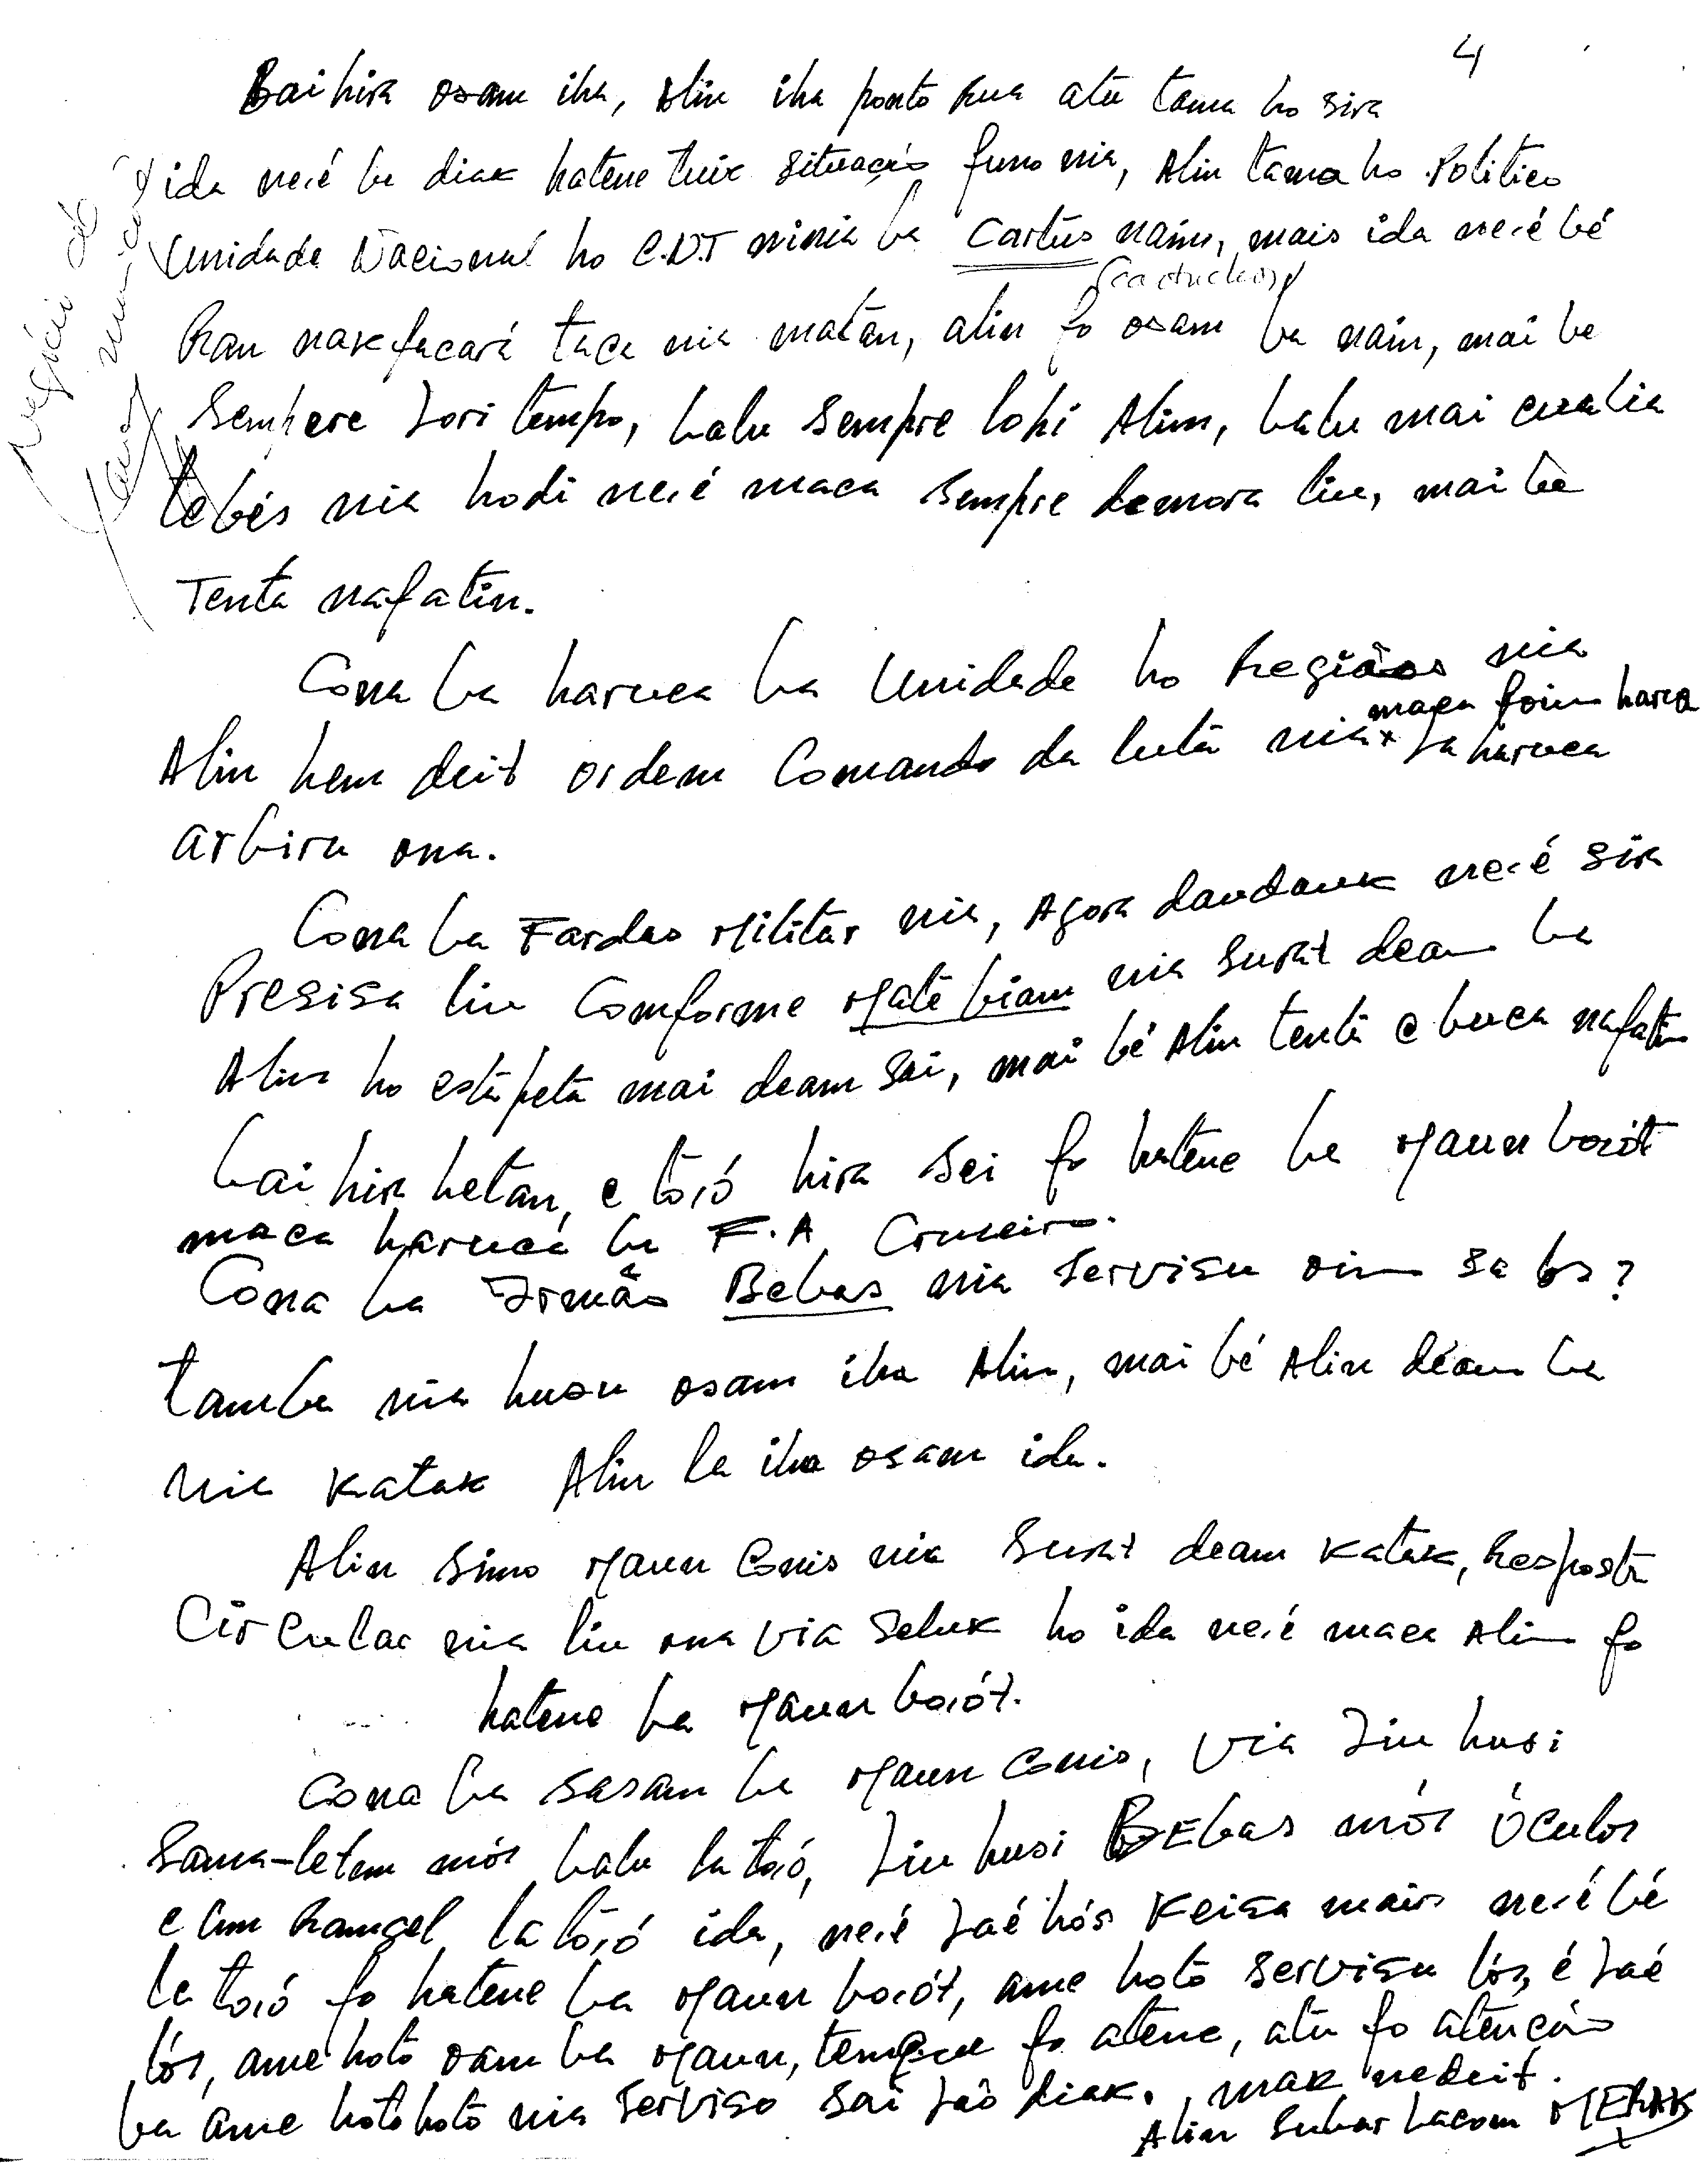 4
Baihira osam iha, Alin iha ponto rua atu tama ho sira
ida ne.é ba diak hatene tuir situação funo nia, Alin tama ho Politico
Unidade Nacional ho C.N.T ninia ba Cartus nain, mais ida ne.é bé
(cartuchos)
Ran nakfacará taca nia matan, alin fo osam ba nain, mai be
Sempere Lori tempo, balu Sempre lohi Alin, balu mai cualia
tebés nia hodi ne.é maca sempre demora liu, mai bé
Tenta nafatin.
Cona ba haruca ba Unidade ho Regiãos nia
Alin hem deit ordem Comando da luta nia x La haruca
maca foin haruca
arbiru ona.
Cona ba Fardas Militar nia, Agora daudauk ne.é sira
Presisa liu Comforme Maté biam nia surat deam ba
Alin ho estapeta mai deam sai, mai bé Alin tenta e buca nafatin
bai hira hetan, e to.ó hira sei fo hatene ba Maun boót
maca haruca ba F.A Cruseiro.
Cona ba Irmão Bebas nia servisu oin sa los?
tamba nia husu osam iha Alin, mai bé Alin deam ba
nia katak Alin la iha osam ida.
Alin simo Maun Conis nia surat deam katak, Resposta
Circular nia liu ona via seluk ho ida ne.é maca Alin fo
hatene ba Maun bo.ót.
Cona ba sasam ba Maun Conis, via Liu husi
Sama-letem mós balu la to.ó, Liu husi BEbas mós Óculos
e um la to.ó ida, ne.é Laé hós Keisa mais ne.é bé
la to.ó fo hatene ba Maun bo.ót, ame hotó servisu lós, é Laé
lós, ame hotó oam ba Maun, fo atene, atu fo atenção
ba ame hotohotó nia serviso sai Laó diak. mak nedeit.
Alin Subar Lacom MERAK